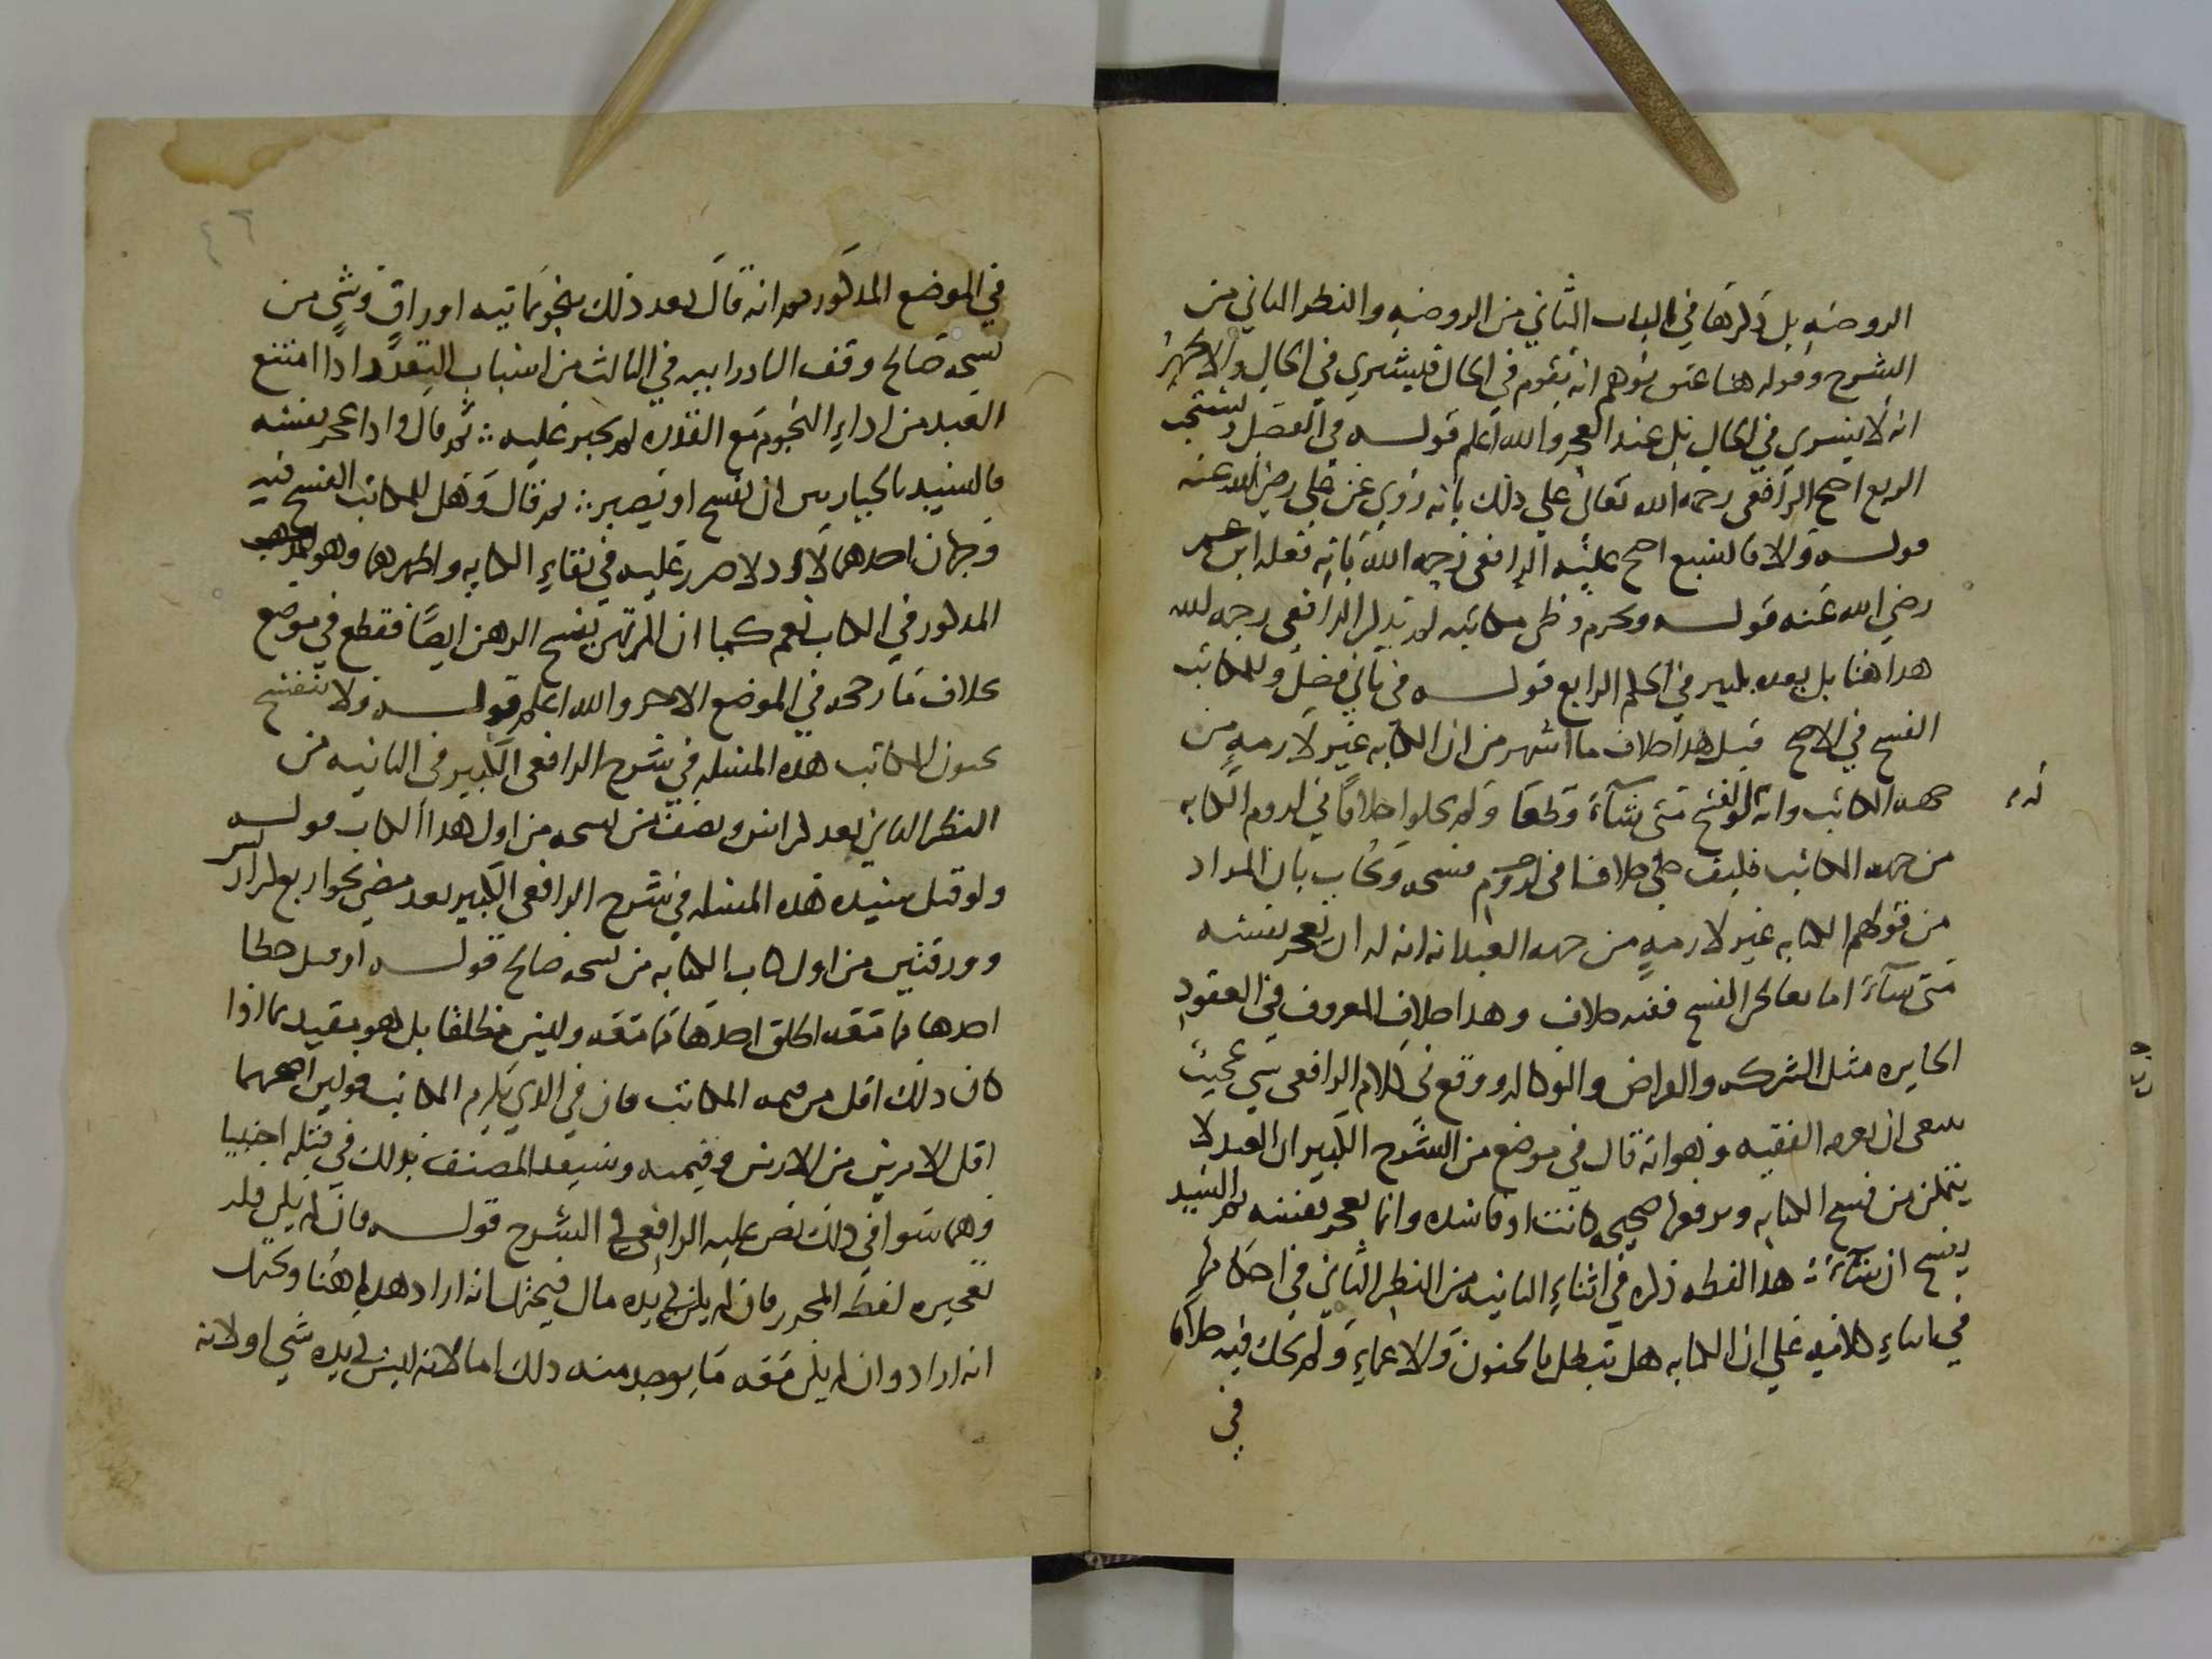 الروضه بل ذكرها في الباب الثاني من الروضه والنظر الثاني من
الشرح وقوله هنا عتق يوهم انه يقوم في الحال فليشري في الحال والاظهر
انه لا يسري في الحال بل عند العجز والله اعلم قوله في الفصل ويستحب
الربع احتج الرافعي رحمه الله تعالى على ذلك بانه روي عن علي رضي الله عنه
قوله والا فالسبع احتج عليه الرافعي رحمه الله بانه فعله ابن عمر
رضي الله عنه قوله ويحرم وطي مكاتبه لم يذكر الرافعي رحمه الله
هدا هنا بل بعده بكثير في الحكم الرابع قوله في ثاني فصل وللمكاتب
الفسخ في الاصح قيل هدا خلاف ما اشتهر من ان الكتابه غير لازمه من
جهه المكاتب وانه له الفسخ متى شآء قطعا ولم يحكوا خلافا في لزوم الكتابه
له
من جهه المكاتب فكيف حكى خلافا في فسخه ويجاب بان المراد
من قولهم الكتابه غير لازمه من جهه العبد انه له ان يعجز نفسه
متى شآء اما تعاطي الفسخ ففيه خلاف وهدا خلاف المعروف في العقود
الجايزه مثل الشركه والقراض والوكاله ووقع في كلام الرافعي شي عجيب
ينبغي ان يعرفه الفقيه وهو انه قال في موضع من الشرح الكبير ان العبد لا
يتمكن من فسخ الكتابه ورفعها صحيحه كانت او فاسده وانما يعجز نفسه ثم السيد
يفسخ ان شآء هدا لفظه ذكره في اثناء الثانيه من النظر الثاني في احكامها
في اثناء كلامه على ان الكتابه هل تبطل بالجنون والاغماء ولم يحك فيه خلافا
في
٤٦
في الموضع المدكور ثم انه قال بعد ذلك بنحو ثمانيه اوراق وشي من
نسخه صالح وقف البادرابيه في الثالث من اسباب التعذر ادا امتنع
العبد من اداء النجوم مع القدره لم يجبر عليه ثم قال وادا عجز نفسه
فالسيد بالخيار بين ان يفسخ او يصبر ثم قال وهل للمكاتب الفسخ فيه
وجهان احدهما لا اد لا ضرر عليه في بقاء الكتابه واظهرهما وهو
المدكور في الكتاب نعم كما ان المرتهن يفسخ الرهن ايضا فقطع في موضع
بخلاف ما رجحه في الموضع الاخر والله اعلم قوله ولا تنفسخ
بجنون المكاتب هده المسئله في شرح الرافعي الكبير في الثانيه من
النظر الثاني بعد كراسين ونصف من نسخه من اول هدا الكتاب قوله
ولو قتل سيده هده المسئله في شرح الرافعي الكبير بعد مضي نحو اربع كراريس
وورقتين من اول كتاب الكتابه من نسخه صالح قوله او قتل خطا
اخدها مما معه اطلق اخدها مما معه وليس مطلقا بل هو مقيد بما اذا
كان ذلك اقل من قيمه المكاتب فان في الدي يلزم المكاتب قولين اصحهما
اقل الامرين من الارش وقيمته وسيعيد المصنف ذلك في قتله اجنبيا
وهما سوا في ذلك نص عليه الرافعي في الشرح قوله فان لم يكن فله
تعجيزه لفظ المحرر فان لم يكن في يده مال فيحتمل انه اراد هدا هنا ويحتمل
انه اراد وان لم يكن معه ما يوجد منه ذلك اما لانه ليس في يده شي او لانه